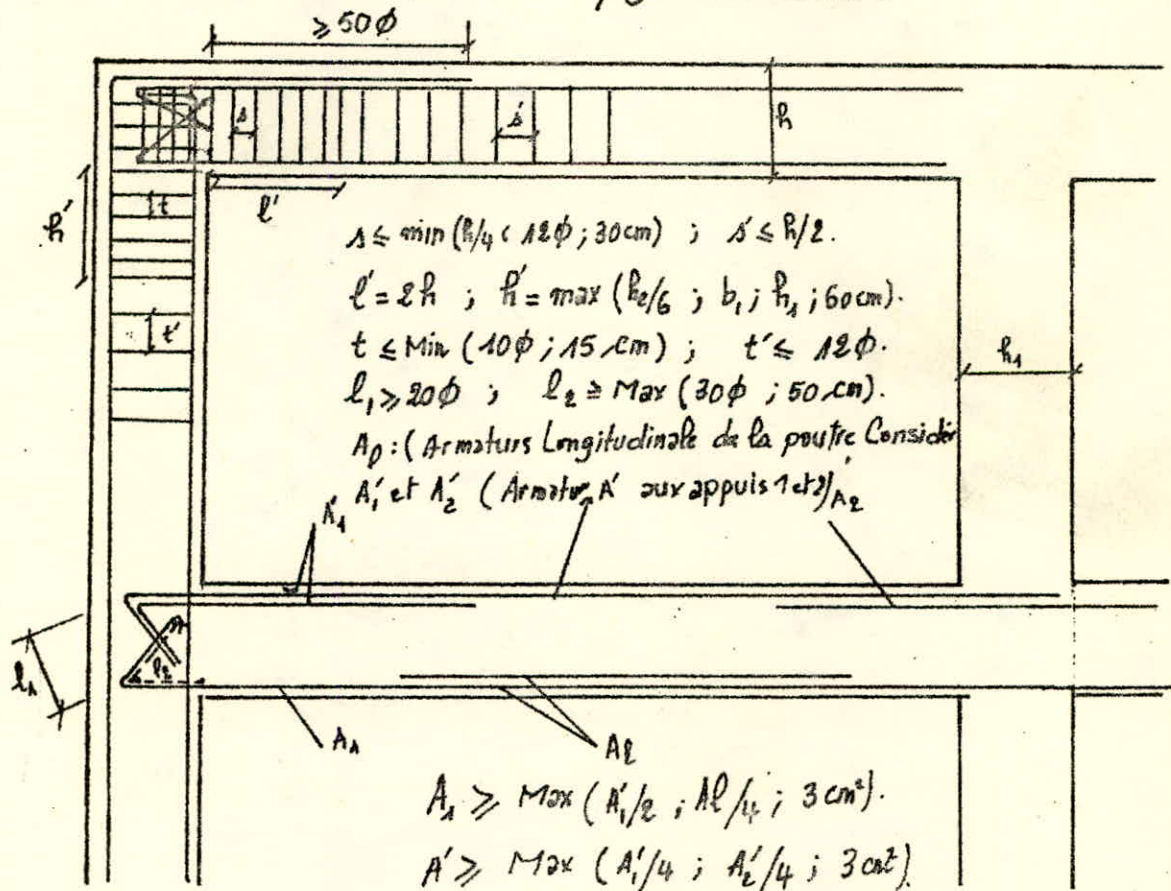 ≥ 50Φ
h
s
s'
h'
t
l'
s ≤ min (h/4 < 12Φ ; 30cm) ; s' ≤ h/2.
l' = 2h ; h' = max (he/6 ; b₁ ; h₁ ; 60cm).
t'
t ≤ Min (10Φ ; 15 cm) ; t' ≤ 12Φ.
h₁
l₁ ≥ 20Φ ; l₂ ≥ Max (30Φ ; 50 cm).
Aℓ : ( Armaturs Longitudinale de la poutre Considér
A'₁ et A'₂ ( Armatur A' aux appuis 1 et 2)
A'₁
A'₂
l₂
l₁
A₁
Aℓ
A₁ ≥ Max ( A'₁/2 ; Aℓ/4 ; 3 cm²).
A' ≥ Max ( A'₁/4 ; A'₂/4 ; 3 cm²)